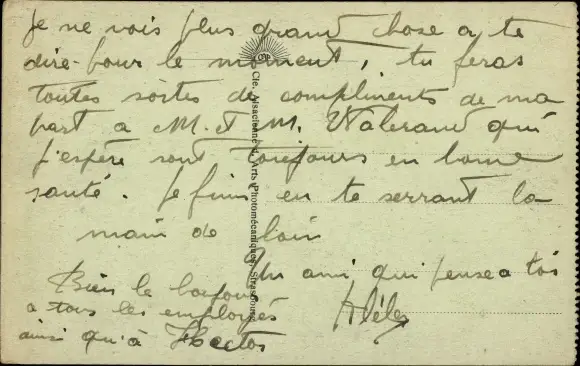 Je ne vois plus grand chose a te
dire pour le moment, tu feras
toutes sortes de compliments de ma
part a M. et M. Valerand qui
j'espère sont toujours en bonne
santé. Je finis en te serrant la
main de loin
Un ami qui pense a toi
Bien le bonjour
a tous les employés
ainsi qu'à Hector
Cie. Alsacienne d. Arts Photomécaniques, Strasbourg